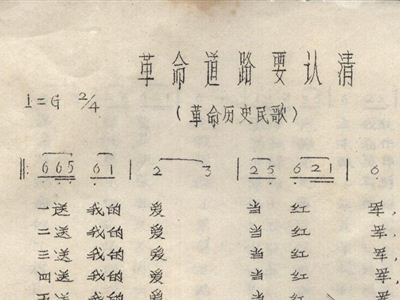 革命道路要认清
1=G 2/4
(革命历史民歌)
‖: 665 61 | 2 3 | 25 621 | 6
一送 我的 爱 当 红 军,
二送 我的 爱 当 红 军,
三送 我的 爱 当 红 军,
四送 我的 爱 当 红 军,